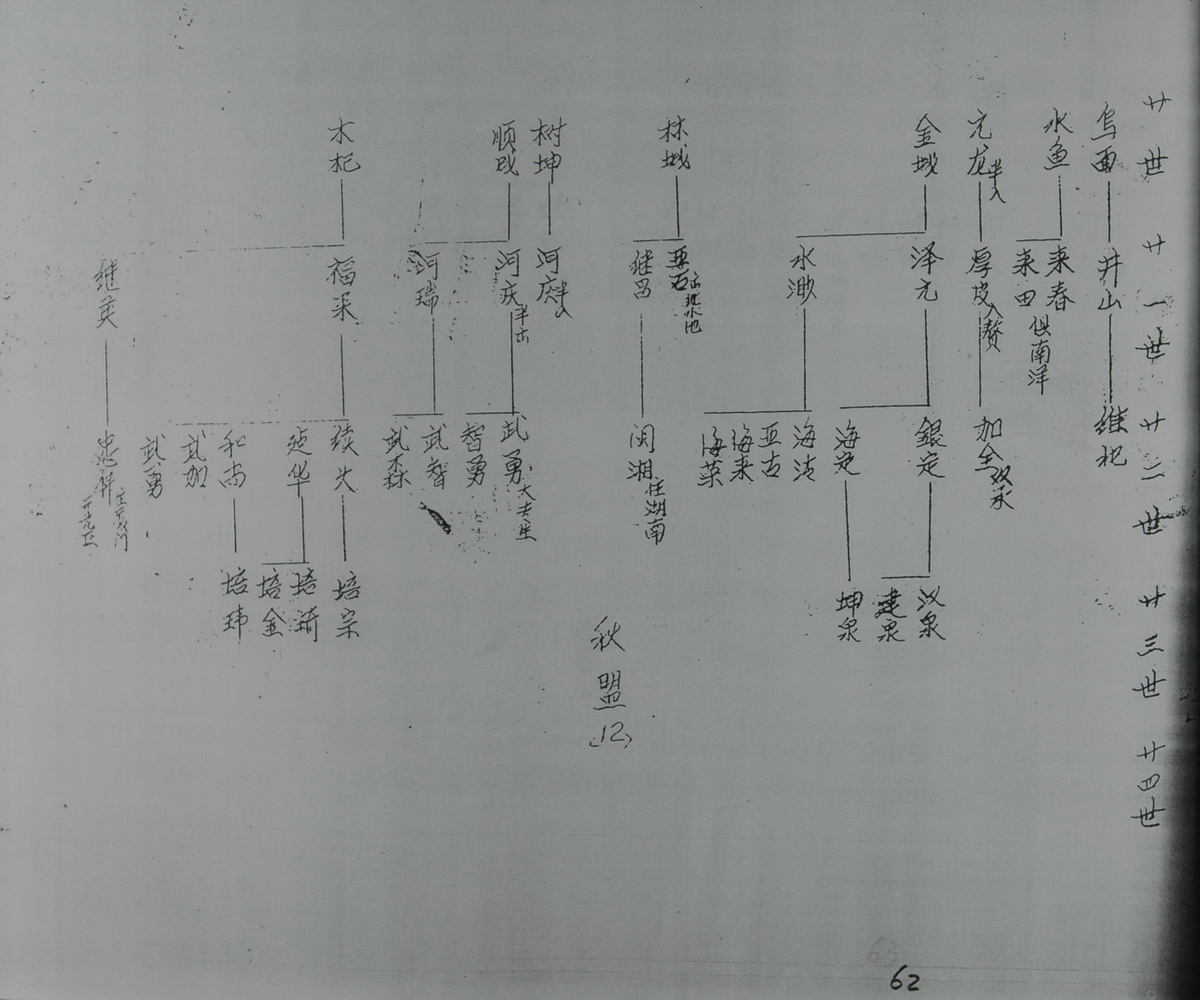 廿世
廿一世
廿二世
廿三世
廿四世
乌面
水鱼
元龙 半入
金城
林城
树坤
顺成
木杞
井山
来春
来田 俱南洋
厚皮 入赘
泽元
水渺
亚石
继昌
河庆 半入
河庆 半出
河瑞
福来
继英
维杞
加全 双承
銀定
海定
海清
亚古
海来
海菜
闵湘 住湖南
武勇 大去生
智勇
武智
武森
续头
廷华
和尚
武加
武勇
忠祥
汉泉
建泉
坤泉
培宗
培琦
培金
培玮
秋盟
(12)
62